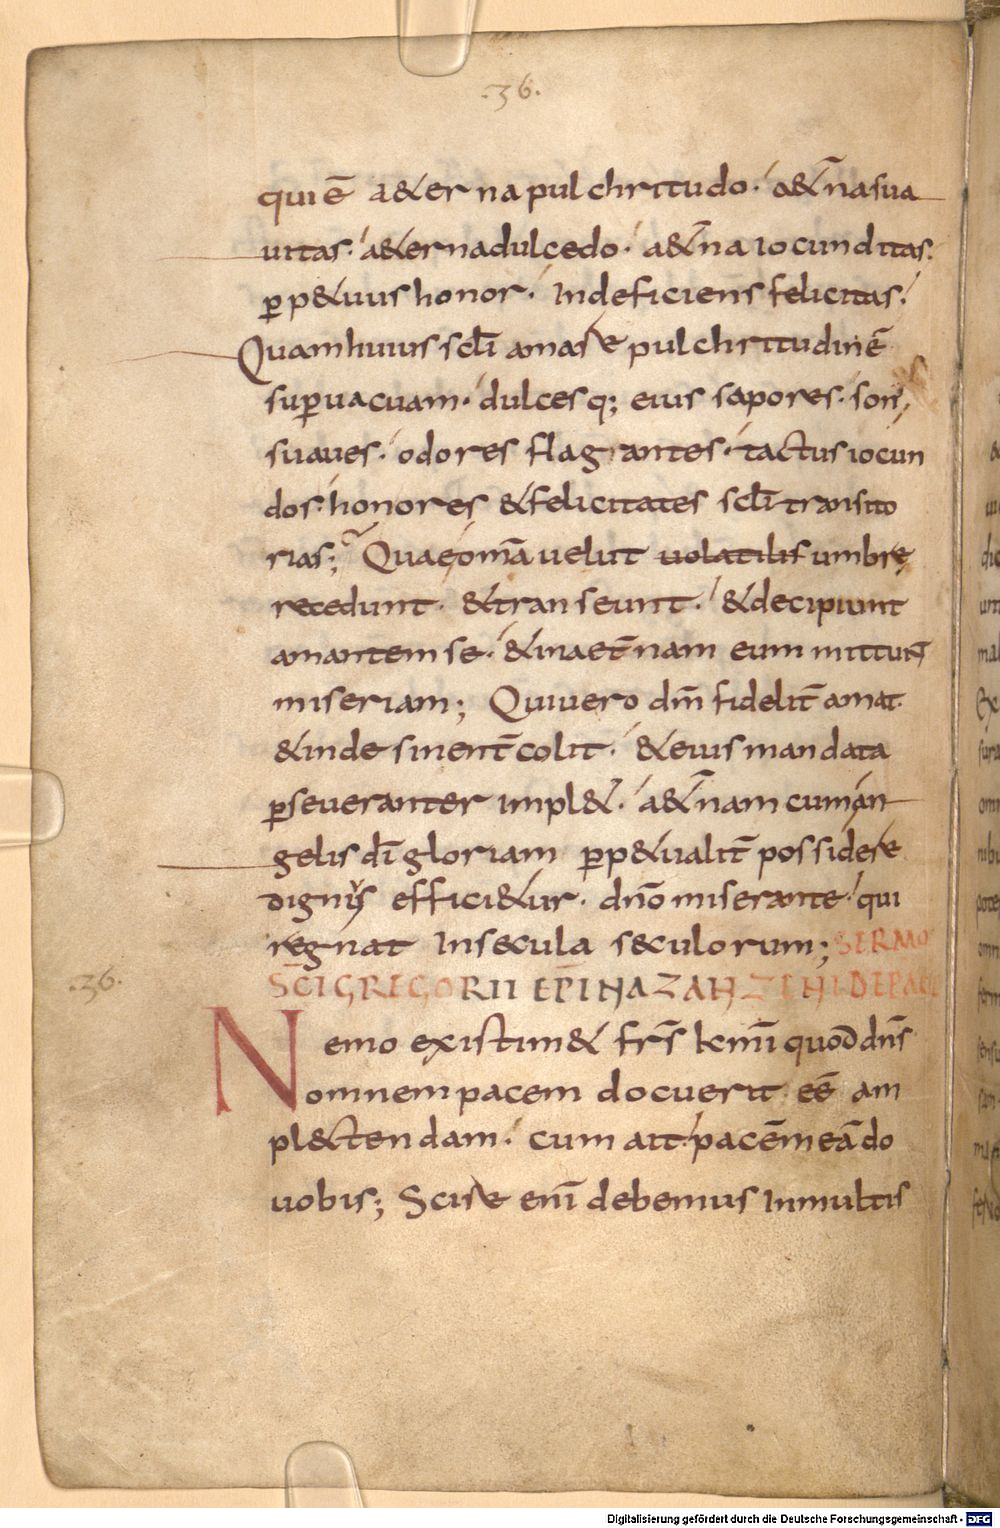 .36.
qui ē a&erna pulchritudo. a&̄na sua
uitas. a&erna dulcedo. a&̄na iocunditas.
ꝑp&uus honor. Indeficiens felicitas.
Quam huius scl̄i amas ę pulchritudinē
suꝑuacuam. dulcesq; eius sapores. son,
suaues. odores flagrantes. tactus iocun
dos. honores & felicitates scl̄i transito
rias; Quae om̄a uelut uolatilis umbrę
recedunt. & transeunt. & decipiunt
amantem se. & in aet̄nam eum mittunt
miseriam; Qui uero dm̄ fidelit̄ amat.
& indesinent̄ colit. & eius mandata
ꝑseueranter impl&. a&̄nam cum an
gelis dī gloriam ꝑp&ualit̄ possidere
dignus effici&ur. dn̄o miserante. qui
regnat In secula seculorum; SERMO
SC̄I GREGORII EP̄I NAZANZENI DE PACE
.36.
Nemo existim& fr̄s km̄i quod dn̄s
omnem pacem docuerit eē am
pl&tendam. cum ait pacē meā do
uobis; Scire enī debemus In multis
Digitalisierung gefördert durch die Deutsche Forschungsgemeinschaft - DFG